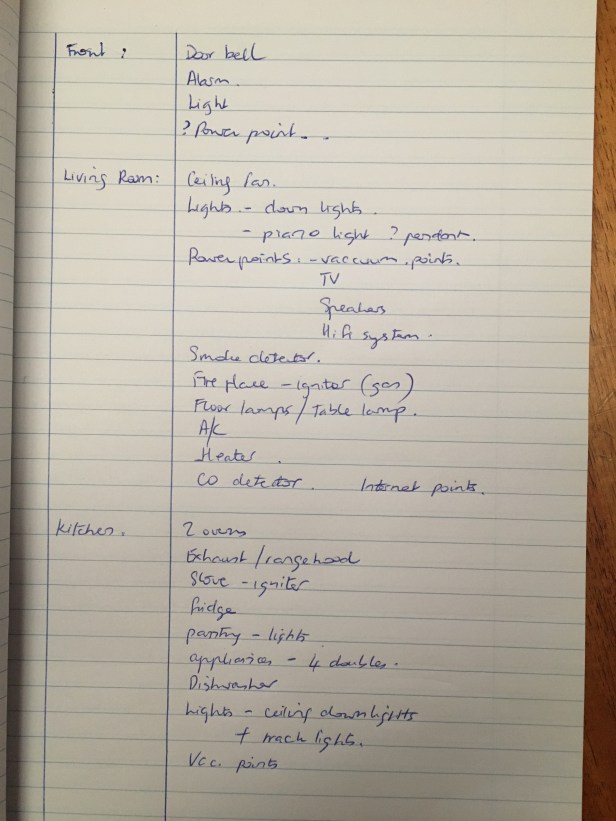 Front : Door bell
Alarm.
Light
? Power point - -
Living Room: Ceiling fan.
Lights - down lights.
- piano light ? pendant.
Power points. - vaccuum points.
TV
Speakers
Hifi system.
Smoke detector.
Fire place - igniter (gas)
Floor lamps / Table lamp.
A/C
Heater.
CO detector. Internet points.
Kitchen. 2 ovens
Exhaust / rangehood
Stove - igniter
fridge
pantry - lights
appliances - 4 doubles.
Dishwasher
Lights - ceiling downlights
+ track lights.
Vac. points